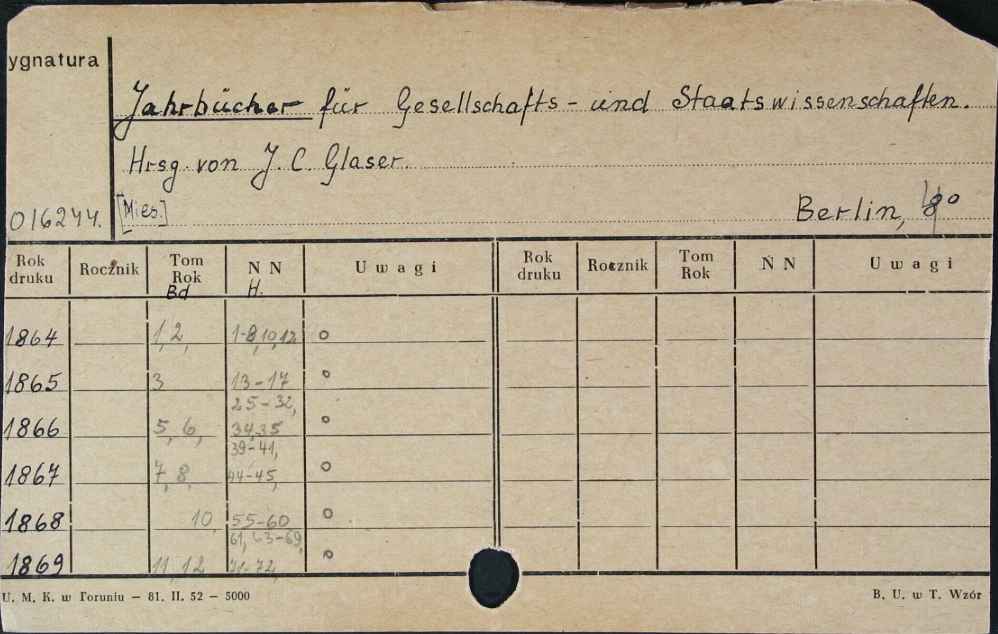 ygnatura
Jahrbücher für Gesellschafts- und Staatswissenschaften.
Hrsg. von J. C. Glaser.
016244. [Mies.] Berlin, 8°
Rok druku Rocznik Tom Rok N N U w a g i Rok druku Rocznik Tom Rok N N U w a g i
Bd H.
1864 1, 2, 1-8, 10, 12 o
1865 3 13-17 o
25-32,
1866 5, 6, 34, 35 o
39-41,
1867 7, 8, 44-45, o
1868 10, 55-60 o
61, 63-69,
1869 11, 12 71-72, o
U. M. K. w Toruniu — 81. II. 52 — 5000 B. U. w T. Wzór